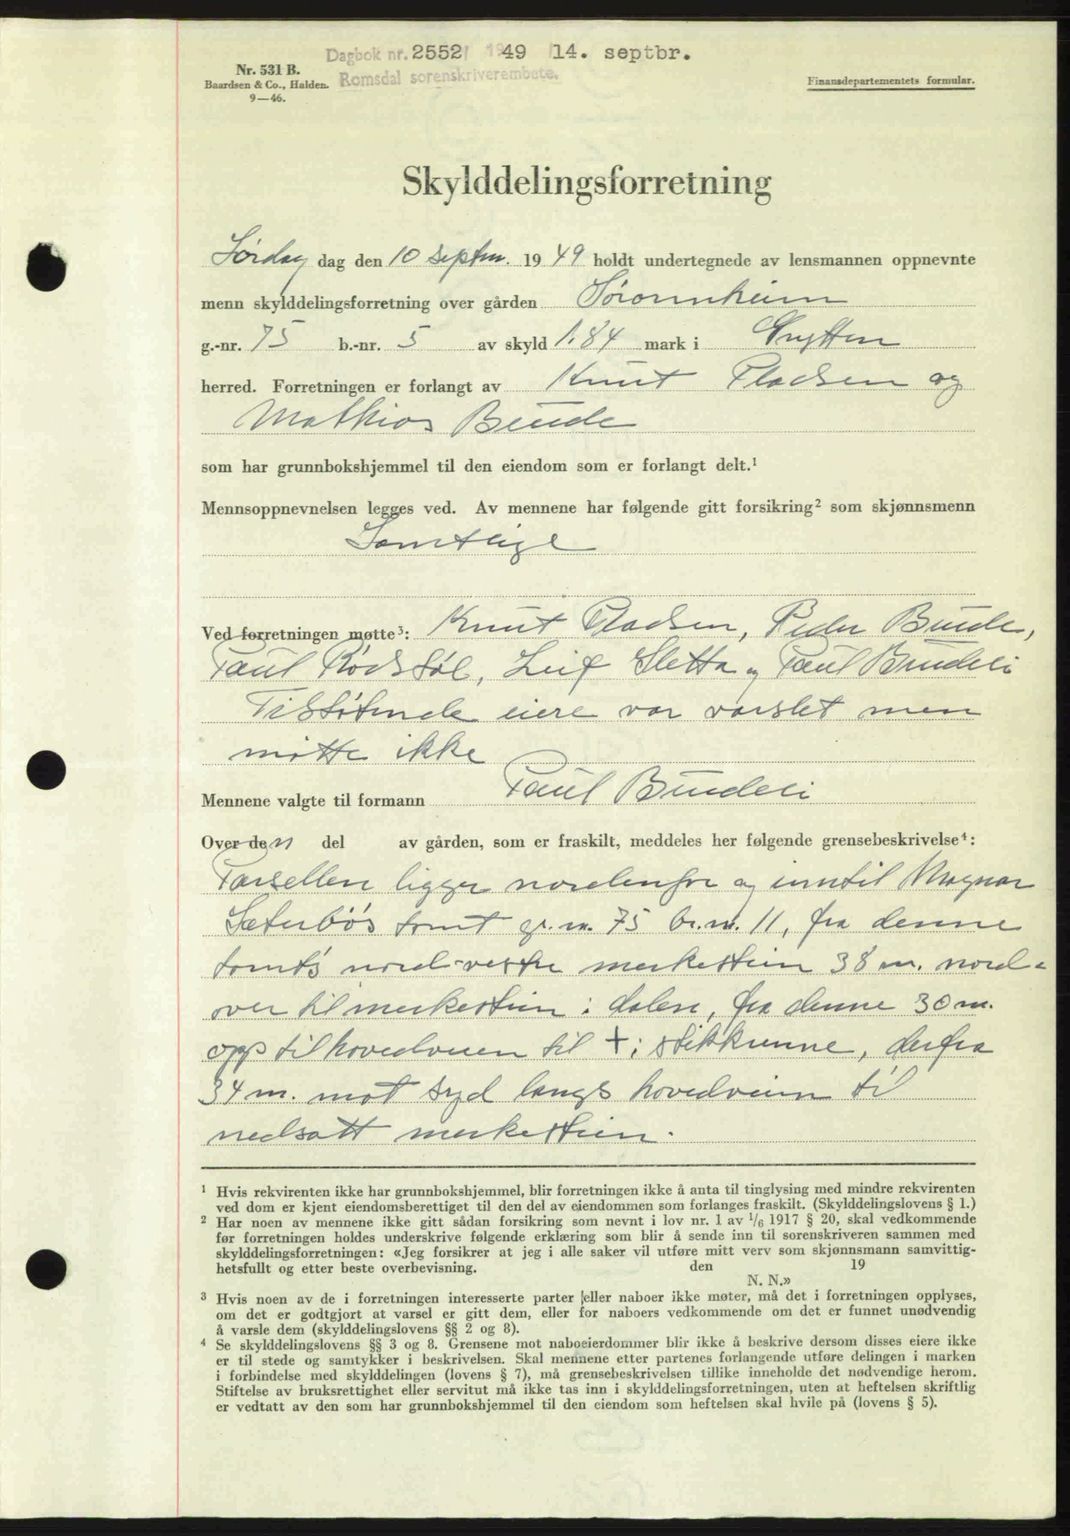 Dagbok nr. 2552 19 49 14. septbr.
Romsdal sorenskriverembete.
Nr. 531 B.
Baardsen & Co., Halden.
9—46.
Finansdepartementets formular.
Skylddelingsforretning
Lördag dag den 10 septm. 1949 holdt undertegnede av lensmannen oppnevnte
menn skylddelingsforretning over gården
g.-nr. 75 b.-nr. 5 av skyld 1.84 mark i Grytten
herred. Forretningen er forlangt av Knut Pladsen og
Mathias Bunde
som har grunnbokshjemmel til den eiendom som er forlangt delt.¹
Mennsoppnevnelsen legges ved. Av mennene har følgende gitt forsikring² som skjønnsmenn
Samtlige
Ved forretningen møtte³: Knut Pladsen, Peder Bunde,
Paul Rødstøl, Leif Sletta og Paul Brudeli
Tilstøtende eiere var varslet men
møtte ikke
Mennene valgte til formann Paul Brudeli
Over den del av gården, som er fraskilt, meddeles her følgende grensebeskrivelse⁴:
Parsellen ligger nordenfor og inntil Magnar
Seterbös tomt gr.nr. 75 br.nr. 11, fra denne
tomts nord-vestre merkestein 38 m. nord-
over til merkestein i dalen, fra denne 30 m.
opp til hovedveien til + i stikkrenne, derfra
34 m. mot syd langs hovedveien til
nedsatt merkestein.
¹ Hvis rekvirenten ikke har grunnbokshjemmel, blir forretningen ikke å anta til tinglysing med mindre rekvirenten
ved dom er kjent eiendomsberettiget til den del av eiendommen som forlanges fraskilt. (Skylddelingslovens § 1.)
² Har noen av mennene ikke gitt sådan forsikring som nevnt i lov nr. 1 av ¹/₆ 1917 § 20, skal vedkommende
før forretningen holdes underskrive følgende erklæring som blir å sende inn til sorenskriveren sammen med
skylddelingsforretningen: «Jeg forsikrer at jeg i alle saker vil utføre mitt verv som skjønnsmann samvittig-
hetsfullt og etter beste overbevisning. den 19
N. N.»
³ Hvis noen av de i forretningen interesserte parter eller naboer ikke møter, må det i forretningen opplyses,
om det er godtgjort at varsel er gitt dem, eller for naboers vedkommende om det er funnet unødvendig
å varsle dem (skylddelingslovens §§ 2 og 8).
⁴ Se skylddelingslovens §§ 3 og 8. Grensene mot naboeierdommer blir ikke å beskrive dersom disses eiere ikke
er til stede og samtykker i beskrivelsen. Skal mennene etter partenes forlangende utføre delingen i marken
i forbindelse med skylddelingen (lovens § 7), må grensebeskrivelsen tillike inneholde det nødvendige herom.
Stiftelse av bruksrettighet eller servitut må ikke tas inn i skylddelingsforretningen, uten at heftelsen skriftlig
er vedtatt av den som har grunnbokshjemmel til den eiendom som heftelsen skal hvile på (lovens § 5).